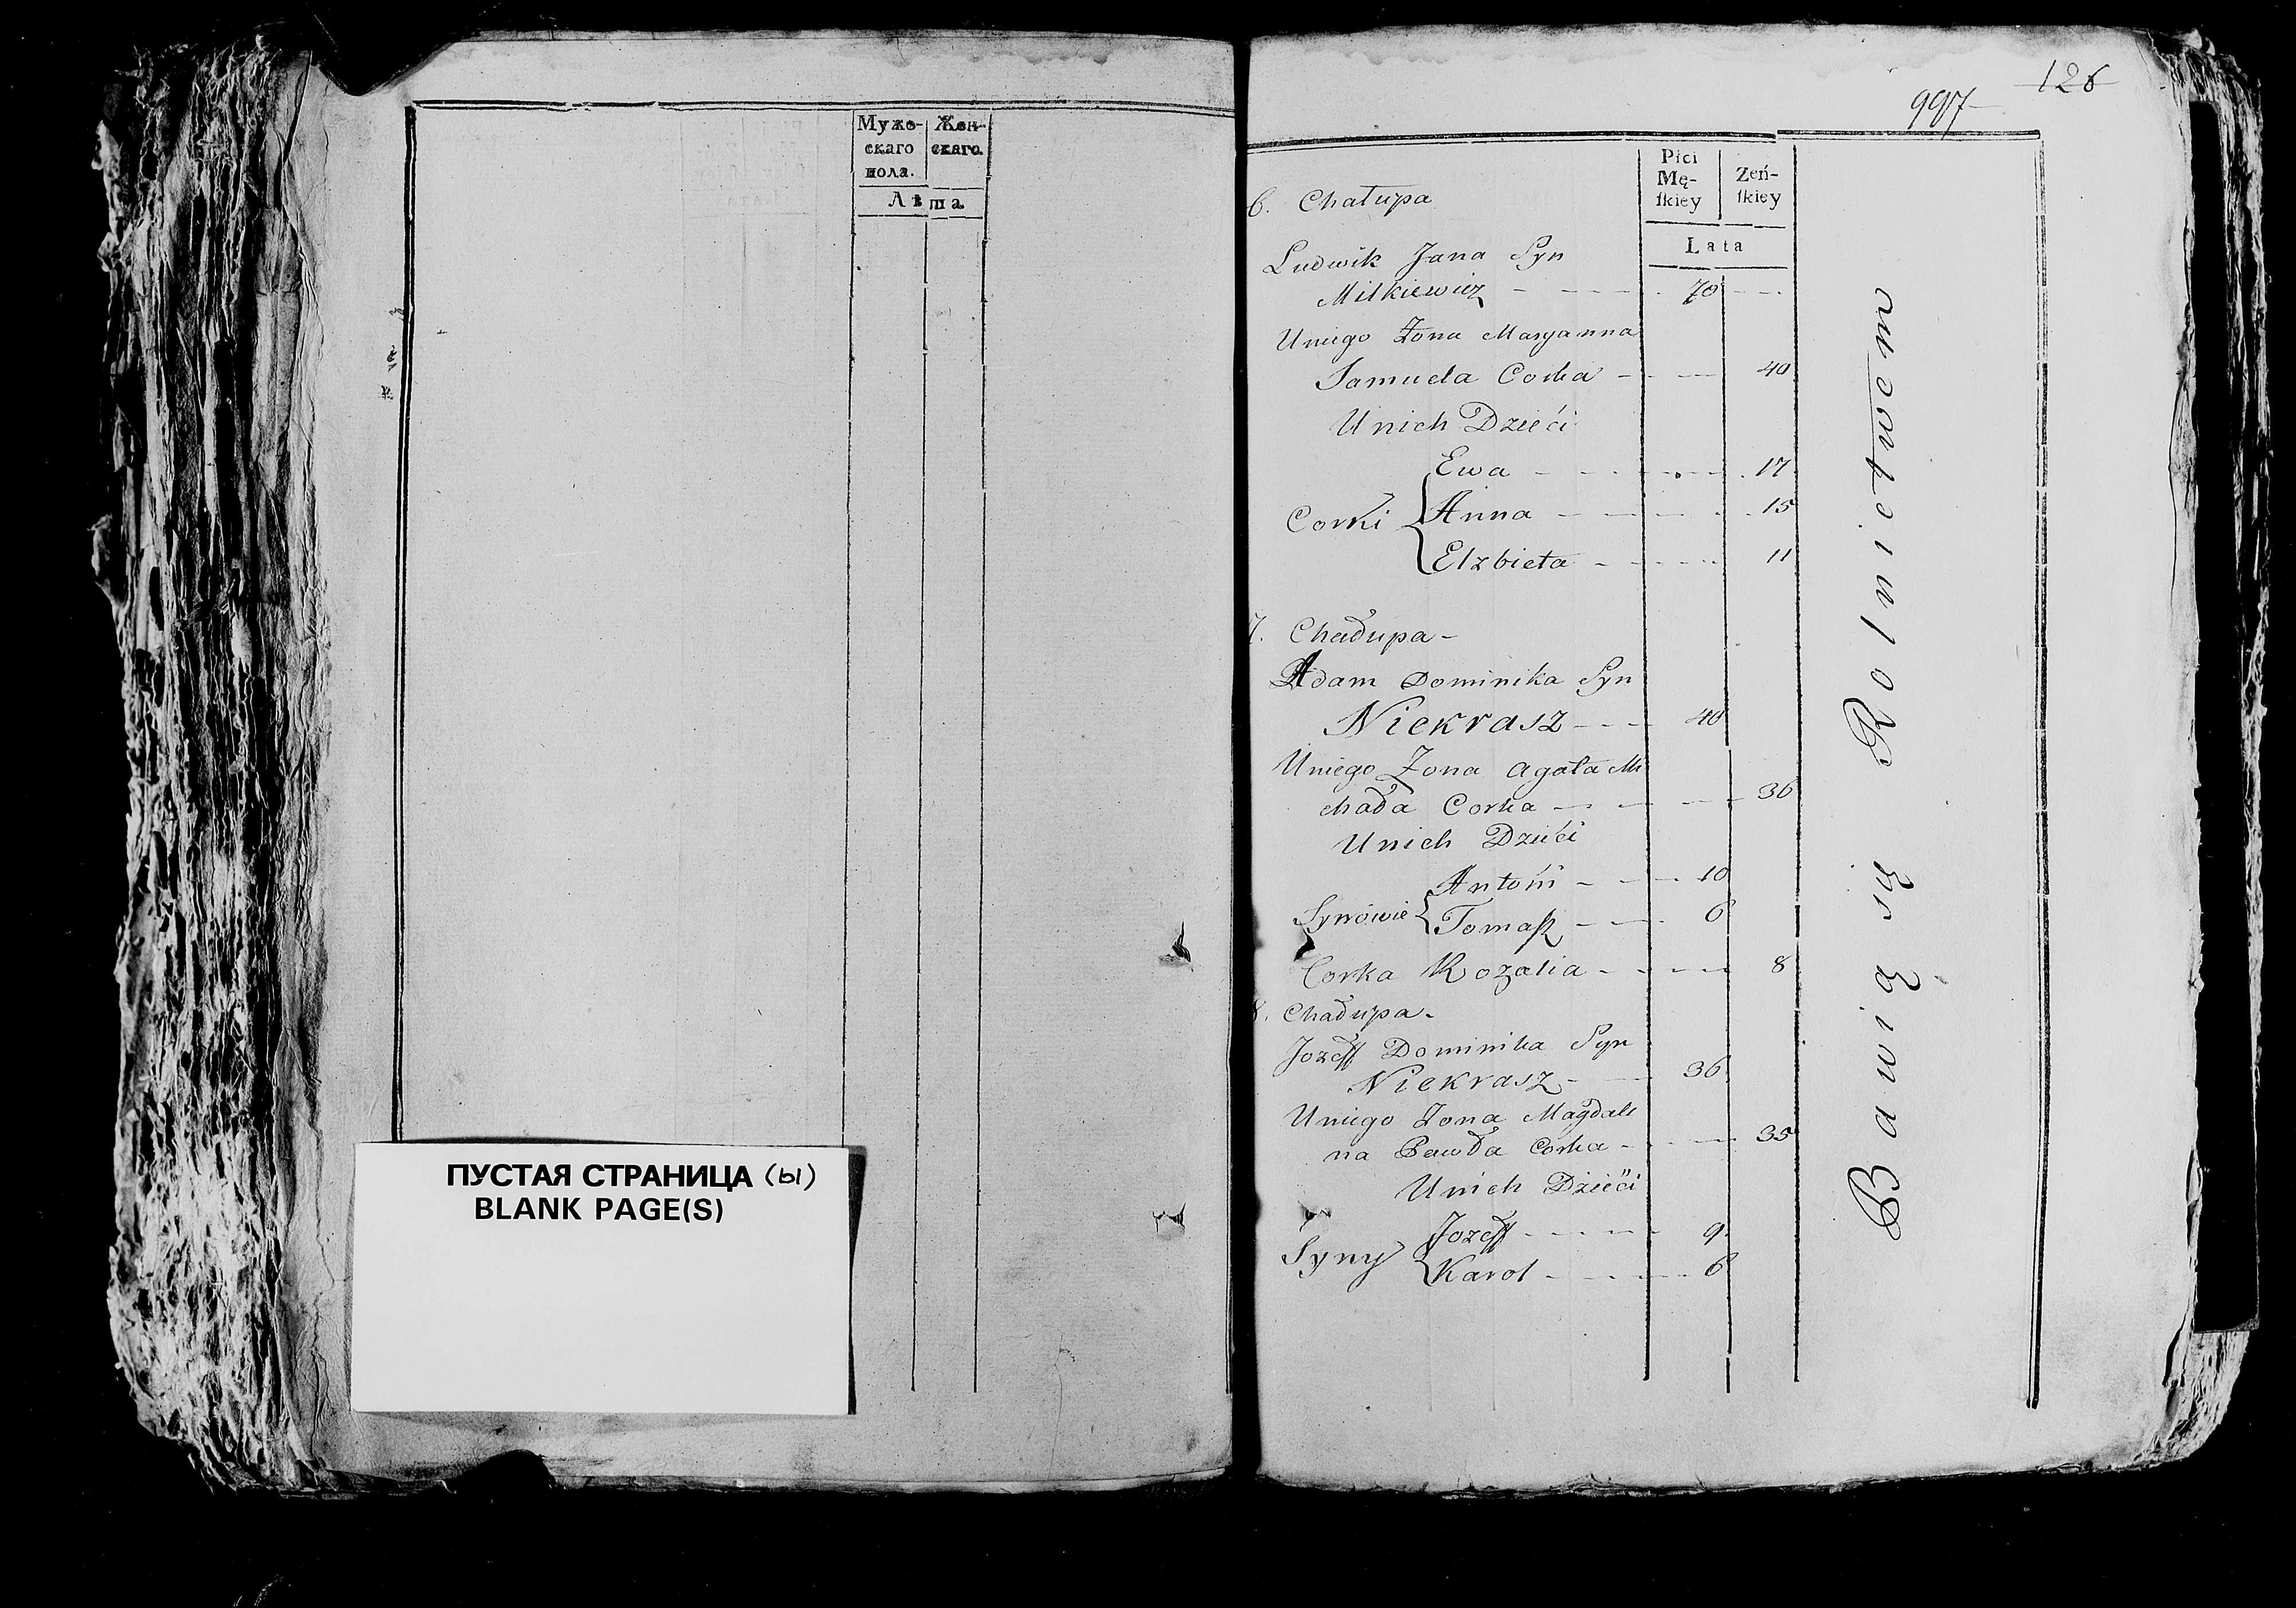 Муже-
скаго
пола.
Жен-
скаго.
Лѣта.
ПУСТАЯ СТРАНИЦА (ы)
BLANK PAGE(S)
126
997
Płci
Mę-
ſkiey
Zeń-
ſkiey
Lata
6. Chałupa
Ludwik Jana Syn
Milkiewicz - - - 70 - -
Uniego Żona Maryanna
Samuela Corka - - - 40
Unich Dzieći
Ewa - - - 17
Corki { Anna - - - 15
Elzbieta - - - 11
7. Chałupa -
Adam Dominika Syn
Niekrasz - - - 40
Uniego Żona Agata Mi
chała Corka - - - 36
Unich Dzieći
Antoni - - - 10
Synowie { Tomaſz - - - 6
Corka Rozalia - - - 8
8. Chałupa -
Jozeff Dominika Syn
Niekrasz - - 36
Uniego Żona Magdale
na Pawła Corka - - - 35
Unich Dzieći
Jozeff - - - 9
Syny { Karol - - - 6
Bawią się Rolnictwem